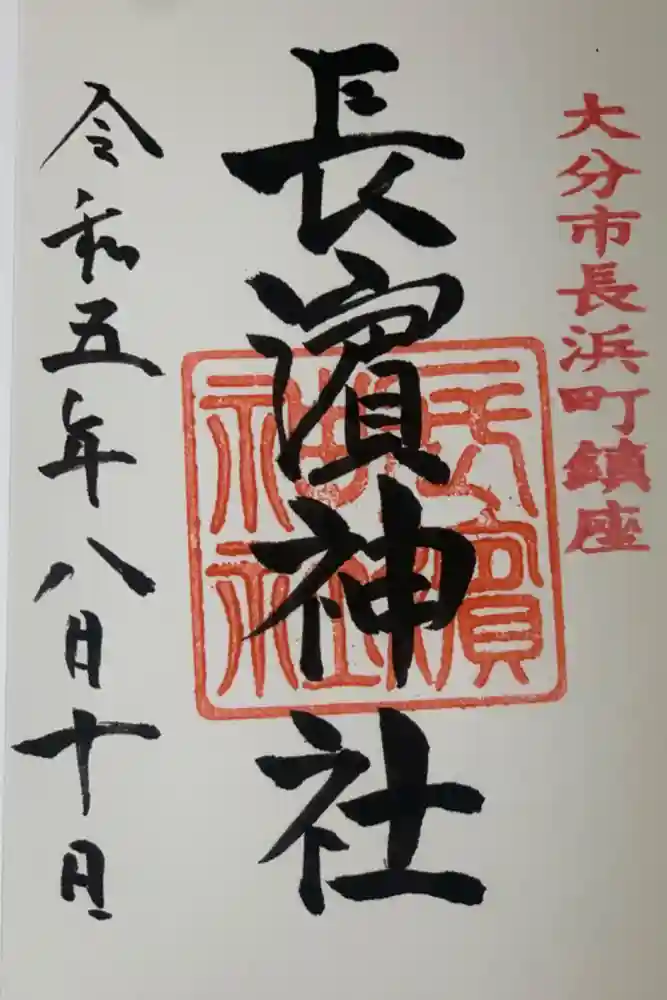 大分市長浜町鎮座
長濱神社
長濱
神社
令和五年八月十日